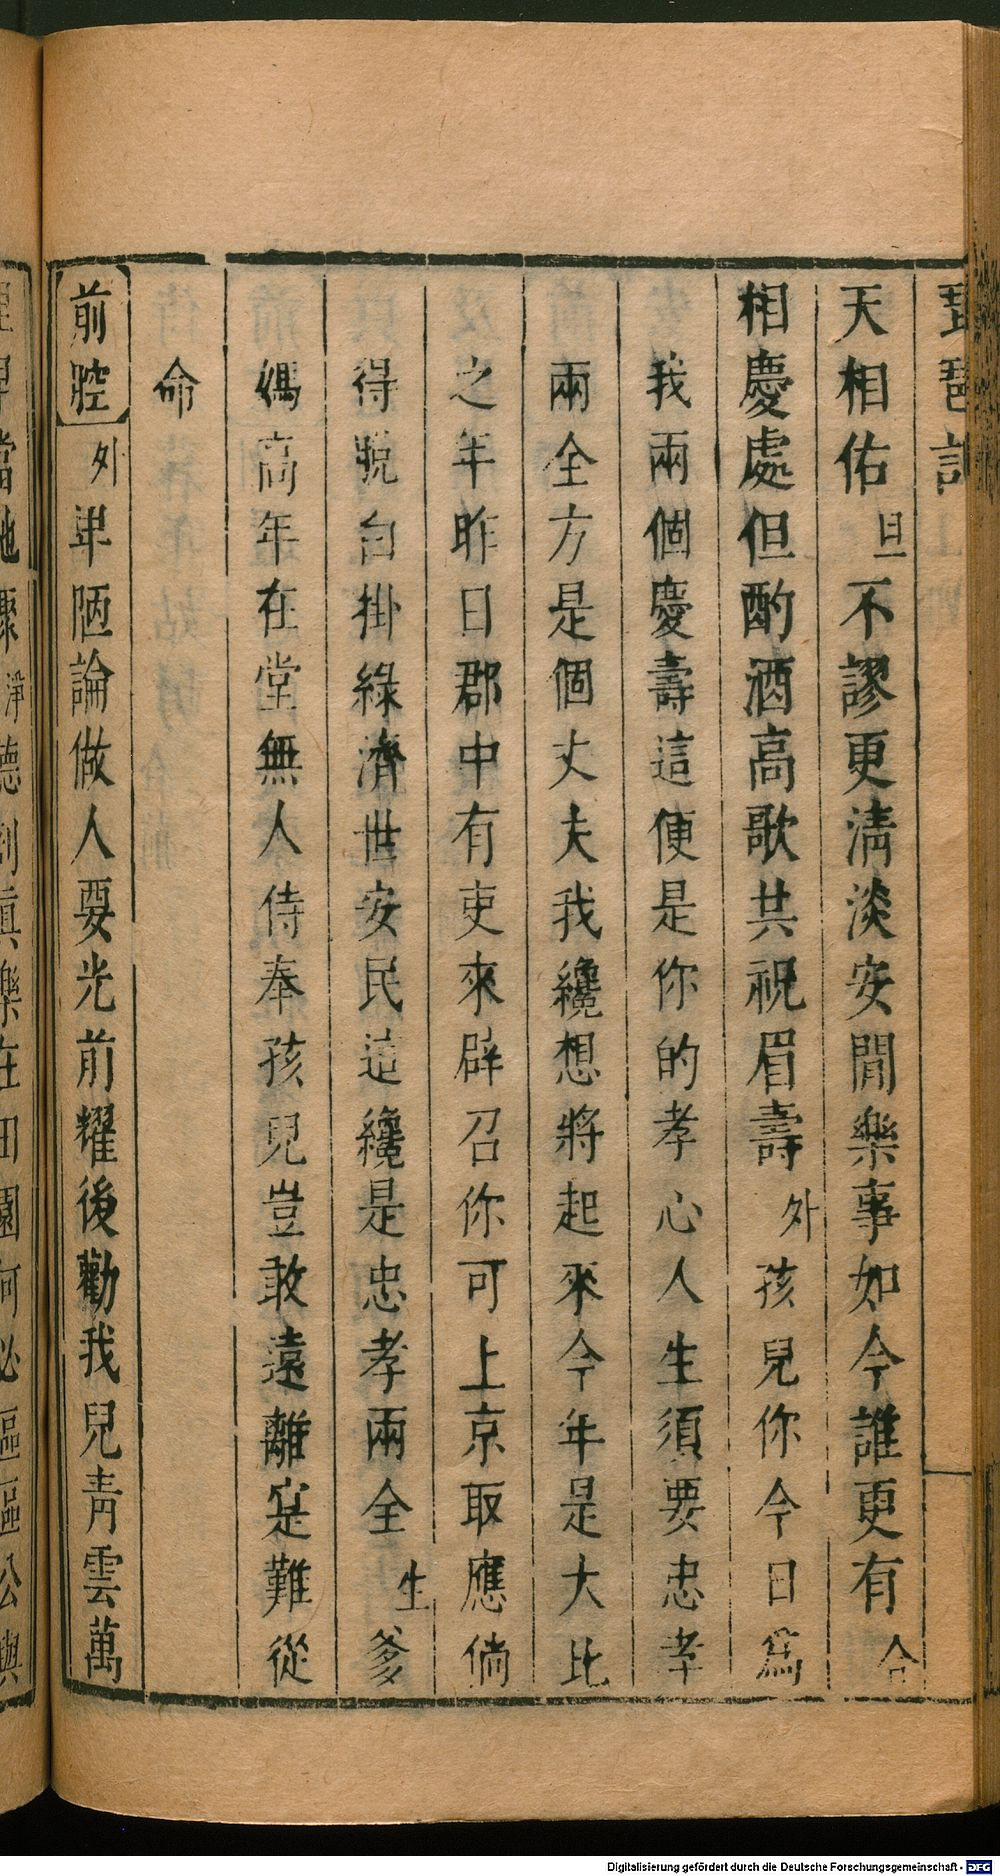 琵琶記
天相佑旦不謬更清淡安閒樂事如今誰更有合
相慶處但酌酒高歌共祝眉壽外孩兒你今日爲
我兩個慶壽這便是你的孝心人生須要忠孝
兩全方是個丈夫我纔想將起來今年是大比
之年昨日郡中有吏來辟召你可上京取應倘
得脫白掛綠濟世安民這纔是忠孝兩全生爹
媽高年在堂無人侍奉孩兒豈敢遠離寔難從
命
前腔外卑陋論做人要光前耀後勸我兒青雲萬
當馳驟淨德到真樂在田園何必區區公與
Digitalisierung gefördert durch die Deutsche Forschungsgemeinschaft - DFG